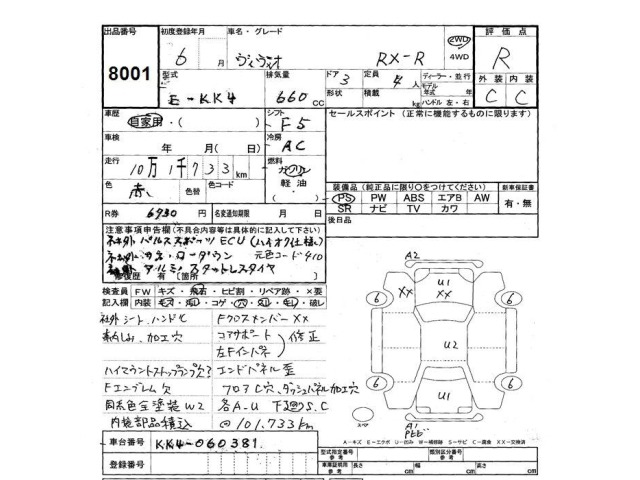 出品番号
8001
初度登録年月
6 月
車名・グレード
ヴィヴィオ RX-R
2WD
4WD
評価点
R
外装 内装
C C
型式
E-KK4
排気量
660 cc
ドア 3
形状
定員 4 人
積載 kg
ディーラー・並行
モデル年式 年
ハンドル 左・右
車歴
自家用・( )
シフト
F5
セールスポイント (正常に機能するものに限ります)
車検
年 月( 日)
冷房
AC
走行
10万1千733km
燃料
ガソリン
軽油
( )
色
赤
色替
色コード
装備品 (純正品に限り○をつけてください)
PS PW ABS エアB AW
SR ナビ TV カワ
新車保証書
有・無
R券 6930 円
名変通知期限 月 日
後日品
注意事項申告欄 (不具合内容等は具体的に記入して下さい)
社外 パルススポーツ ECU (ハイオク仕様)
ローダウン 元色コード410
アルミ、スタットレスタイヤ
修復歴 有 [箇所 ]
検査員記入欄
FW キズ・飛石・ヒビ割・リペア跡・×要
内装 キズ・汚れ・コゲ・穴・スレ・キレ・破レ
社外シート、ハンドル
Fクロスメンバーxx
加工穴
コアサポート
左Fインパネ
修正
ハイマウントストップランプ欠?
エンドパネル歪
Fエンブレム欠
フロア C穴、ダッシュパネル加工穴
同系色全塗装W2
各A-U 下廻りS.C
内装部品積込
@101.733km
A2
U1
XX
XX
U2
U1
A1
6
6
6
6
スペア
A-キズ E-エクボ U-凹み W-補修跡 S-サビ C-腐食 X-要交換 XX-交換済
車台番号
KK4-060381
登録番号
型式指定番号
参考
類別区分番号
参考
車庫証明用
参考
長さ cm
幅 cm
高さ cm